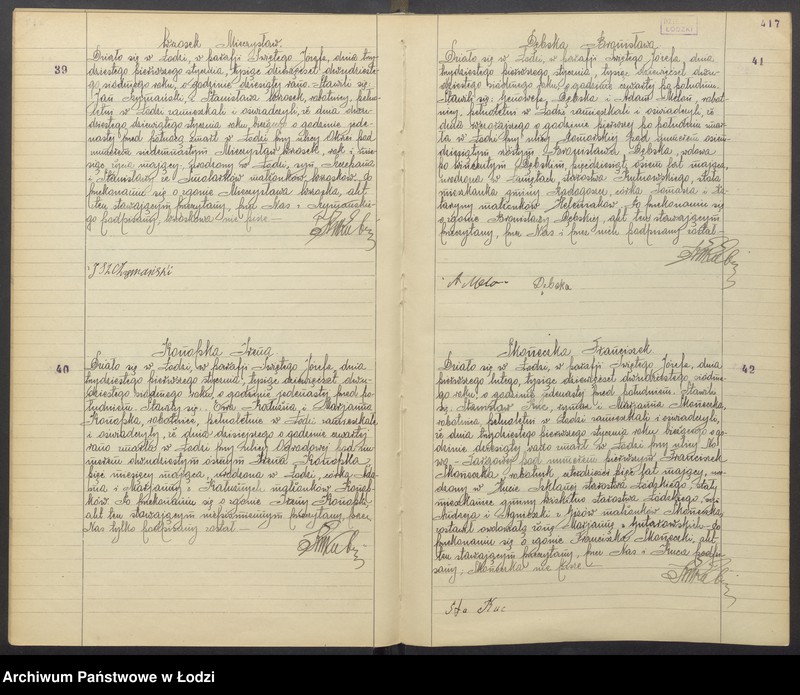 39
Wrosek Mieczysław.
Działo się w Łodzi, w parafji Świętego Józefa, dnia trzy-
dziestego pierwszego stycznia, tysiąc dziewięćset dwudzieste-
go siódmego roku, o godzinie dziesiątej rano. Stawili się
Jan Szymański i Stanisława Wrosek, robotnicy, pełno-
letni w Łodzi zamieszkali i oświadczyli, że dnia dwu-
dziestego dziewiątego stycznia roku bieżącego o godzinie jede-
nastej przed północą zmarł w Łodzi przy ulicy
numerem siedemnastym Mieczysław Wrosek, rok i
życia mający, zrodzony w Łodzi, syn Szczepana
i Stanisławy ze Smolarków małżonków Wrosków. Po
przekonaniu się o zgonie Mieczysława Wroska, akt
ten stawającym przeczytany, przez Nas i Szymańskie-
go podpisany, Wroskowa nie pisze —
J Szymański
40
Konopka Irena
Działo się w Łodzi, w parafji Świętego Józefa, dnia
trzydziestego pierwszego stycznia, tysiąc dziewięćset dwu-
dziestego siódmego roku, o godzinie jedenastej przed po-
łudniem. Stawiły się: Ewa i Marjanna
Konopka, robotnice, pełnoletnie w Łodzi zamieszkałe,
i oświadczyły, że dnia dzisiejszego o godzinie czwartej
rano zmarła w Łodzi przy ulicy Ogrodowej pod nu-
merem dwudziestym ósmym Irena Konopka
pięć miesięcy mająca, urodzona w Łodzi, córka Ada-
ma i Marjanny z małżonków Konop-
ków. Po przekonaniu się o zgonie Ireny Konopki,
akt ten stawającym niepiśmiennym przeczytany, przez
Nas tylko podpisany został —
417
ŁÓDZKI
41
Dębska Bronisława
Działo się w Łodzi, w parafji Świętego Józefa, dnia
trzydziestego pierwszego stycznia, tysiąc dziewięćset dwu-
dziestego siódmego roku, o godzinie czwartej po południu.
Stawili się: Genowefa Dębska i Adam Meloń, robot-
nicy, pełnoletni w Łodzi zamieszkali i oświadczyli, że
dnia wczorajszego o godzinie pierwszej po południu zmar-
ła w Łodzi przy ulicy pod numerem osiem-
dziesiątym szóstym Bronisława Dębska, wdowa
po Wincentym Dębskim, pięćdziesiąt osiem lat mająca,
urodzona w starostwa Kutnowskiego, stała
mieszkanka gminy Radogoszcz, córka Romana i
małżonków Po przekonaniu się
o zgonie Bronisławy Dębskiej, akt ten stawającym
przeczytany, przez Nas i przez nich podpisany został —
A Melo Dębska
42
Moneczka Franciszek
Działo się w Łodzi, w parafji Świętego Józefa, dnia
pierwszego lutego, tysiąc dziewięćset dwudziestego siódme-
go roku, o godzinie jedenastej przed południem. Stawili
się: Stanisław Kuc, i Marjanna Moneczka,
robotnica pełnoletni w Łodzi zamieszkali i oświadczyli,
że dnia trzydziestego pierwszego stycznia roku bieżącego o go-
dzinie dziesiątej rano zmarł w Łodzi przy ulicy No-
wo-Targowej pod numerem pierwszym Franciszek
Moneczka, robotnik, czterdzieści pięć lat mający, u-
rodzony w starostwa Łódzkiego, stały
mieszkaniec gminy starostwa Łódzkiego, syn
i Agnieszki z małżonków Moneczka,
zostawił owdowiałą żonę Marjannę z Po
przekonaniu się o zgonie Franciszka Moneczki, akt
ten stawającym przeczytany, przez Nas i Kuca podpi-
sany, Moneczka nie pisze —
Sta Kuc
Archiwum Państwowe w Łodzi